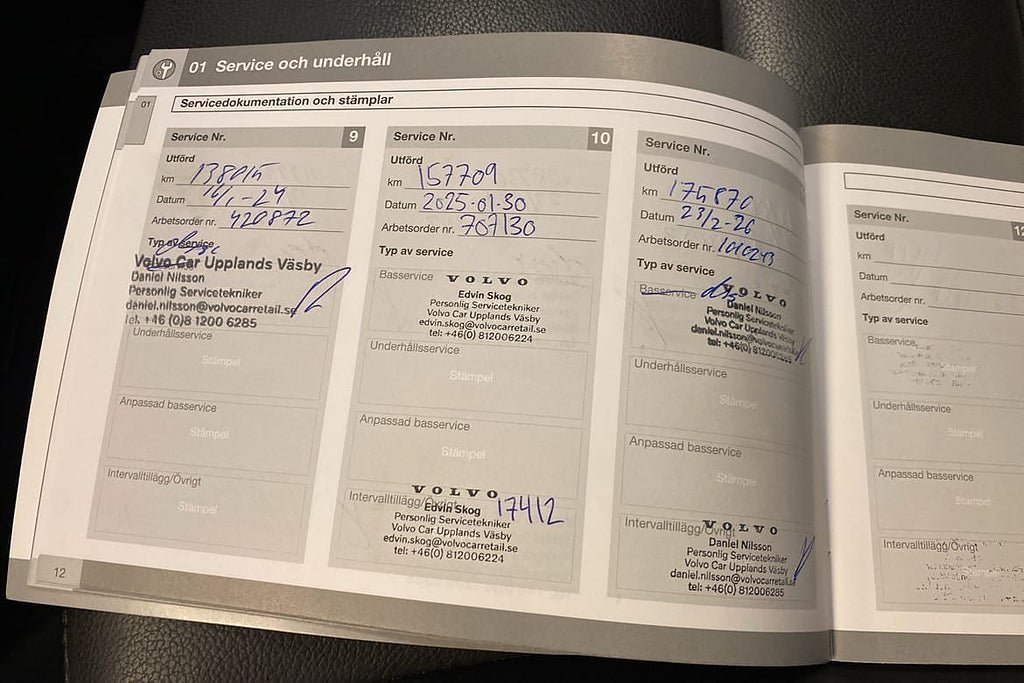 01 Service och underhåll
01
Servicedokumentation och stämplar
Service Nr. 9
Utförd
km 138015
Datum 16/1-24
Arbetsorder nr. 420872
Typ av service
Volvo Car Upplands Väsby
Daniel Nilsson
Personlig Servicetekniker
daniel.nilsson@volvocarretail.se
Tel. +46 (0)8 1200 6285
Underhållsservice
Stämpel
Anpassad basservice
Stämpel
Intervalltillägg/Övrigt
Stämpel
12
Service Nr. 10
Utförd
km 157709
Datum 2025-01-30
Arbetsorder nr. 707130
Typ av service
Basservice
VOLVO
Edvin Skog
Personlig Servicetekniker
Volvo Car Upplands Väsby
edvin.skog@volvocarretail.se
tel: +46(0) 812006224
Underhållsservice
Stämpel
Anpassad basservice
Stämpel
Intervalltillägg/Övrigt
VOLVO
Edvin Skog 17412
Personlig Servicetekniker
Volvo Car Upplands Väsby
edvin.skog@volvocarretail.se
tel: +46(0) 812006224
Service Nr.
Utförd
km 175870
Datum 23/2-26
Arbetsorder nr. 1010243
Typ av service
Basservice
VOLVO
Daniel Nilsson
Personlig Servicetekniker
Volvo Car Upplands Väsby
daniel.nilsson@volvocarretail.se
tel: +46(0) 812006285
Underhållsservice
Stämpel
Anpassad basservice
Stämpel
Intervalltillägg/Övrigt
VOLVO
Daniel Nilsson
Personlig Servicetekniker
Volvo Car Upplands Väsby
daniel.nilsson@volvocarretail.se
tel: +46(0) 812006285
Service Nr. 12
Utförd
km
Datum
Arbetsorder nr.
Typ av service
Basservice
Stämpel
Underhållsservice
Stämpel
Anpassad basservice
Stämpel
Intervalltillägg/Övrigt